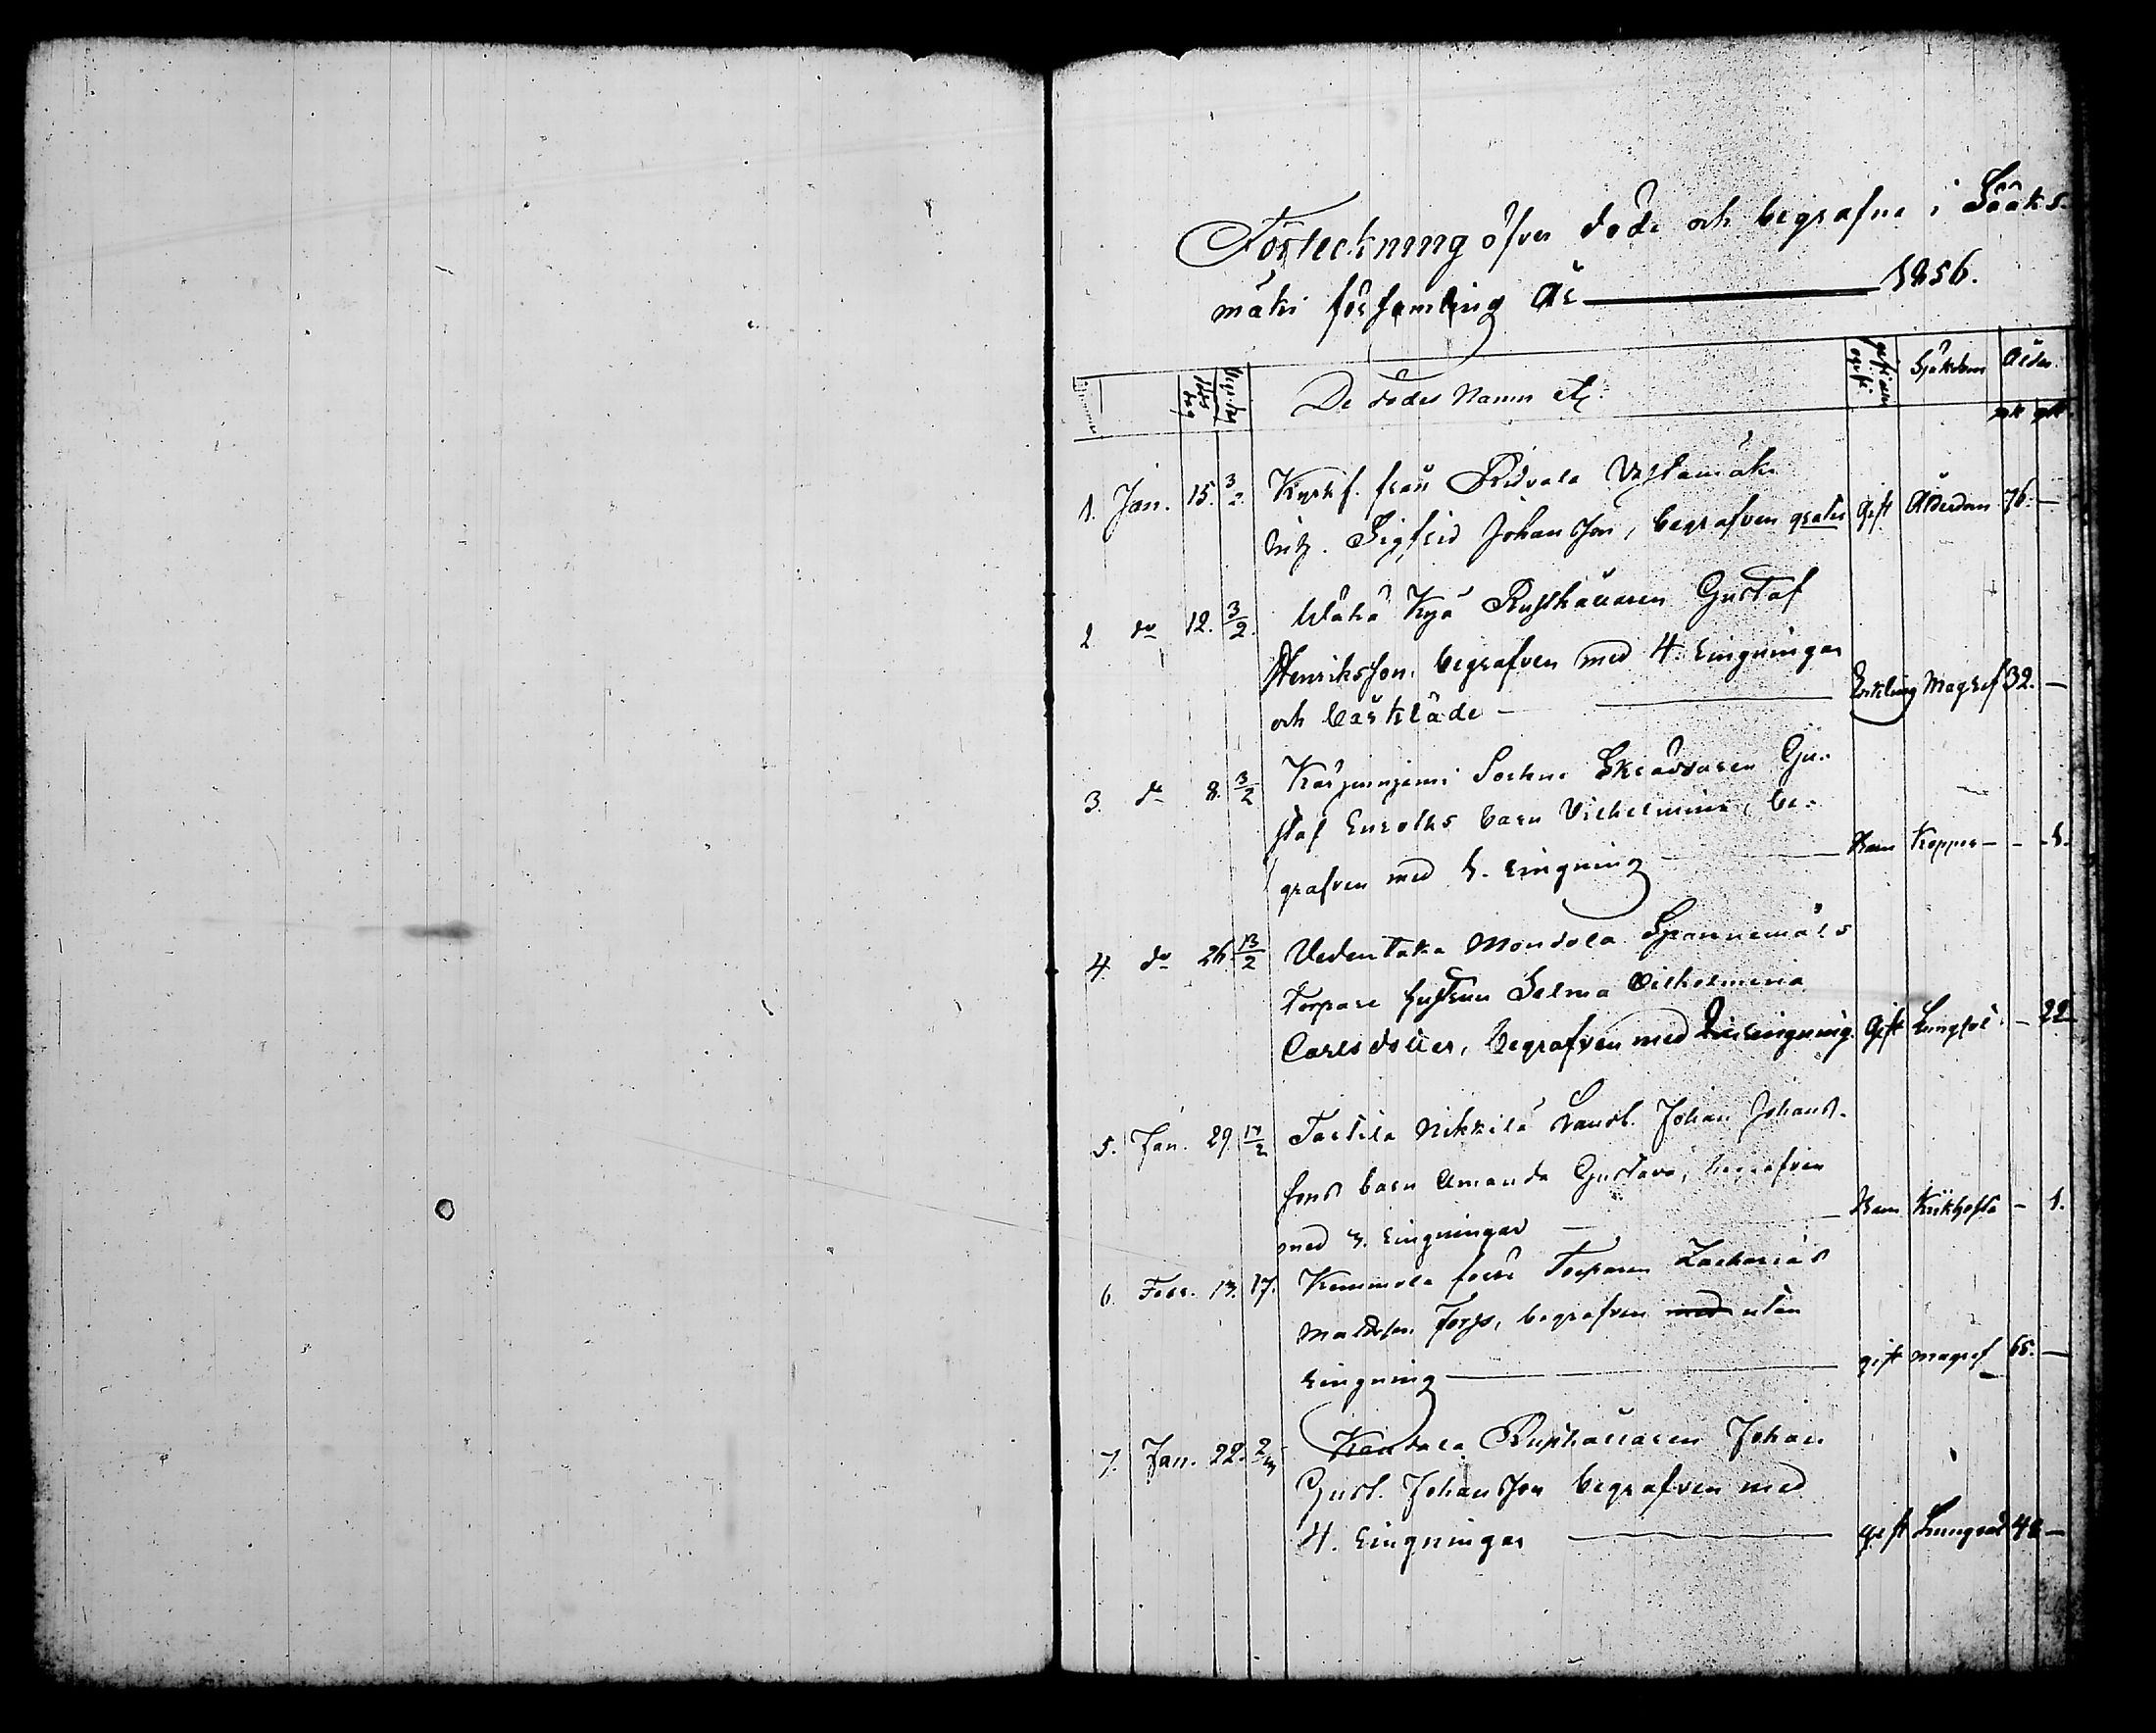 Förteckning öfver döde och begrafne i Sääks-
mäki församling År 1856.
De dödes Namn etc. Sjukdom Ålder.
mk qk
1. Jan. 15. 3/2 Kyrkf. från Ridvala Ylistamäki
Sigfrid Johansson, begrafven gratis gift Ålderdom 76. —
2 do 12. 3/2. Wähä Kyä Rusthållaren Gustaf
Henriksson, begrafven med 4. ringningar
och bårkläde — Enkling Magref 32. —
3. do 8. 3/2 Karjunjemi Sockne Skräddaren Gu-
staf Enroths barn Vilhelmina, be-
grafven med 1. ringning — Barn Koppor — - - 1.
4. do 26. 13/2 Uedentaka Mondola Spannemäls
Torpare hustrun Selma Vilhelmina
Carlsdotter, begrafven med ringning. gift Lungsot - 22
5. Jan. 29. 17/2 Tarttila Nikkilä Landb. Johan Johans-
sons barn Amanda Gustava, begrafven
med 3. ringningar — Barn Kikhosta - 1.
6. Febr. 13. 17. Kemmola Torparen Zacharias
Mattsson Fors, begrafven med utan
ringning — gift magref 65. —
7. Jan. 22. 2/3 Kandala Rusthållaren Johan
Gust. Johansson begrafven med
4. ringningar — gift Lungsot 48 —